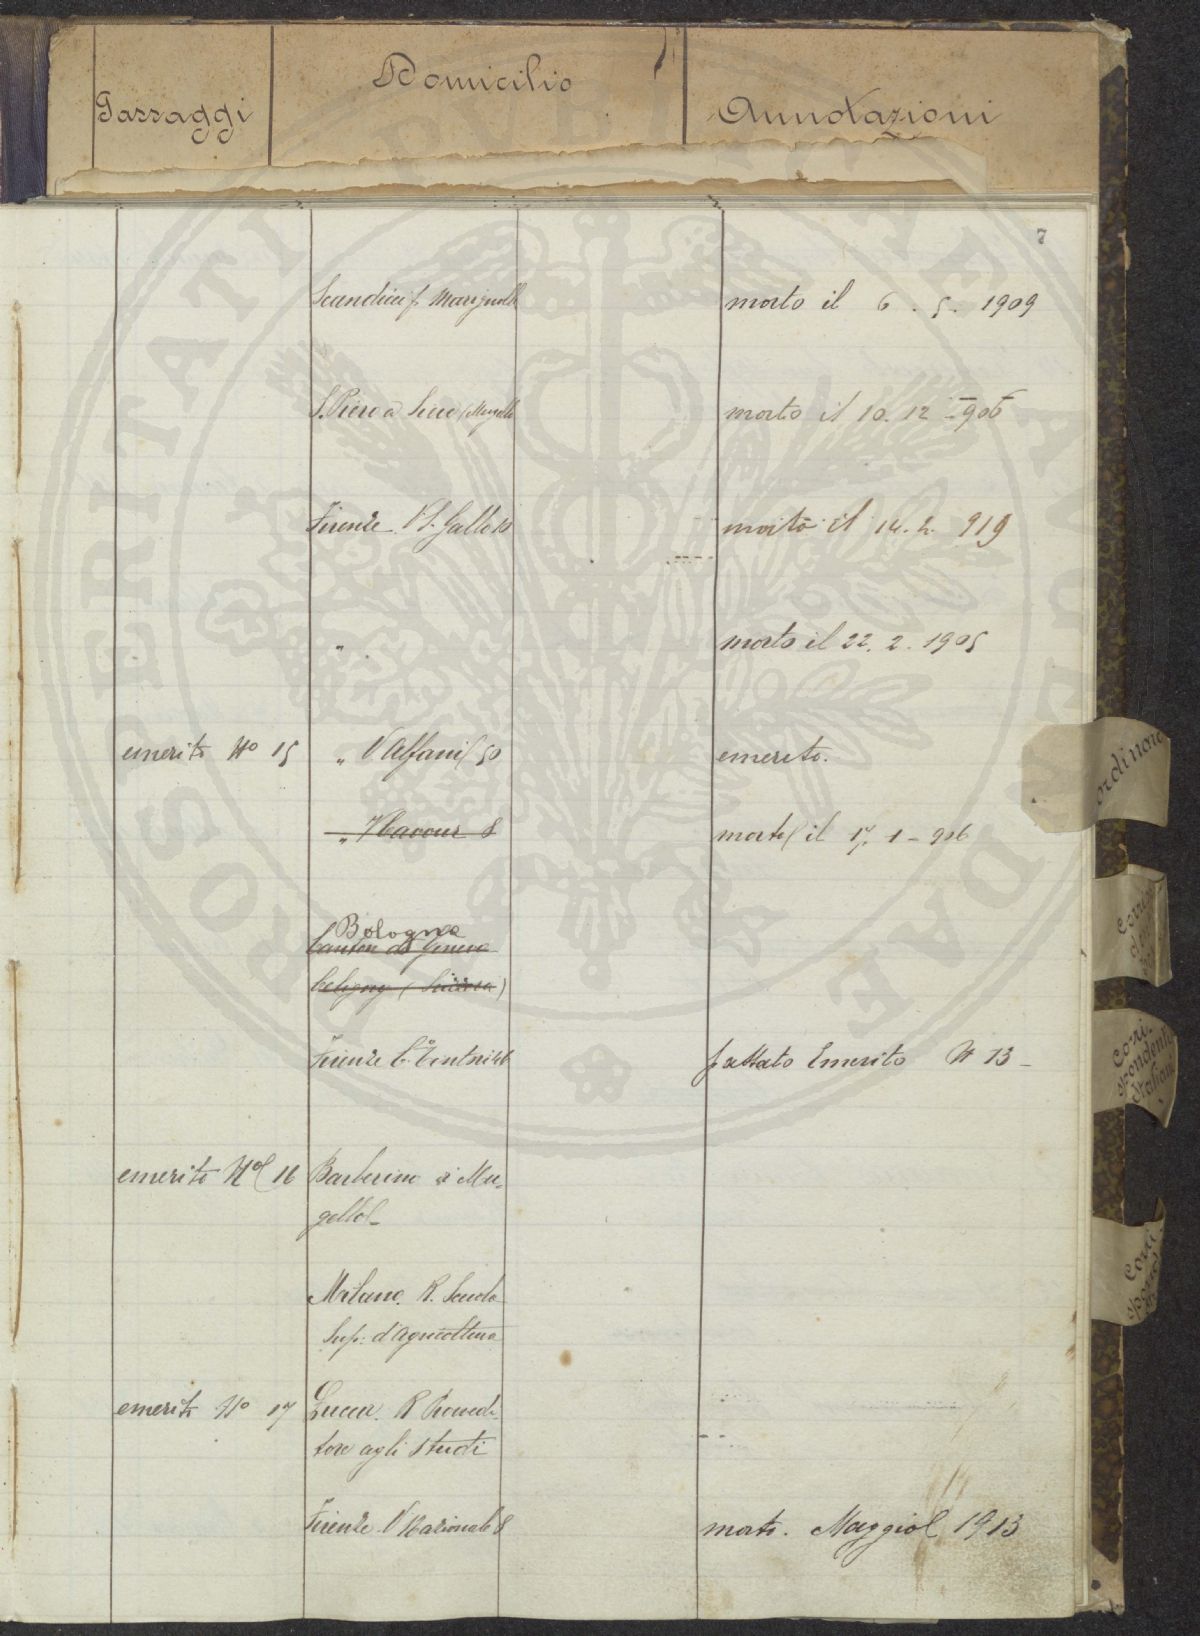 Passaggi
Domicilio
Annotazioni
7
Scandicci p. Marignolle
morto il 6. 5. 1909
S. Piero a Sieve (Mugello
morto il 10. 12 - 906
Firenze V. S. Gallo 10
morto il 14. 2. 919
"
morto il 22. 2. 1905
emerito No 15
" V Alfani 50
emerito.
" V Cavour 8
morto il 17. 1 - 906
Bologna
Canton de Geneve
(Svizzera)
Firenze
passato Emerito N 13 -
emerito No 16
Barberino di Mu-
gello
Milano. R. Scuola
Sup. d'Agricoltura
emerito No 17
Lucca. R Provedi-
tore agli Studi
Firenze V Nazionale 8
morto. Maggio 1913
PROSPERITATI PUBLICAE AUGENDAE
ordinari
Corri-
spondenti
Italiani
Corri